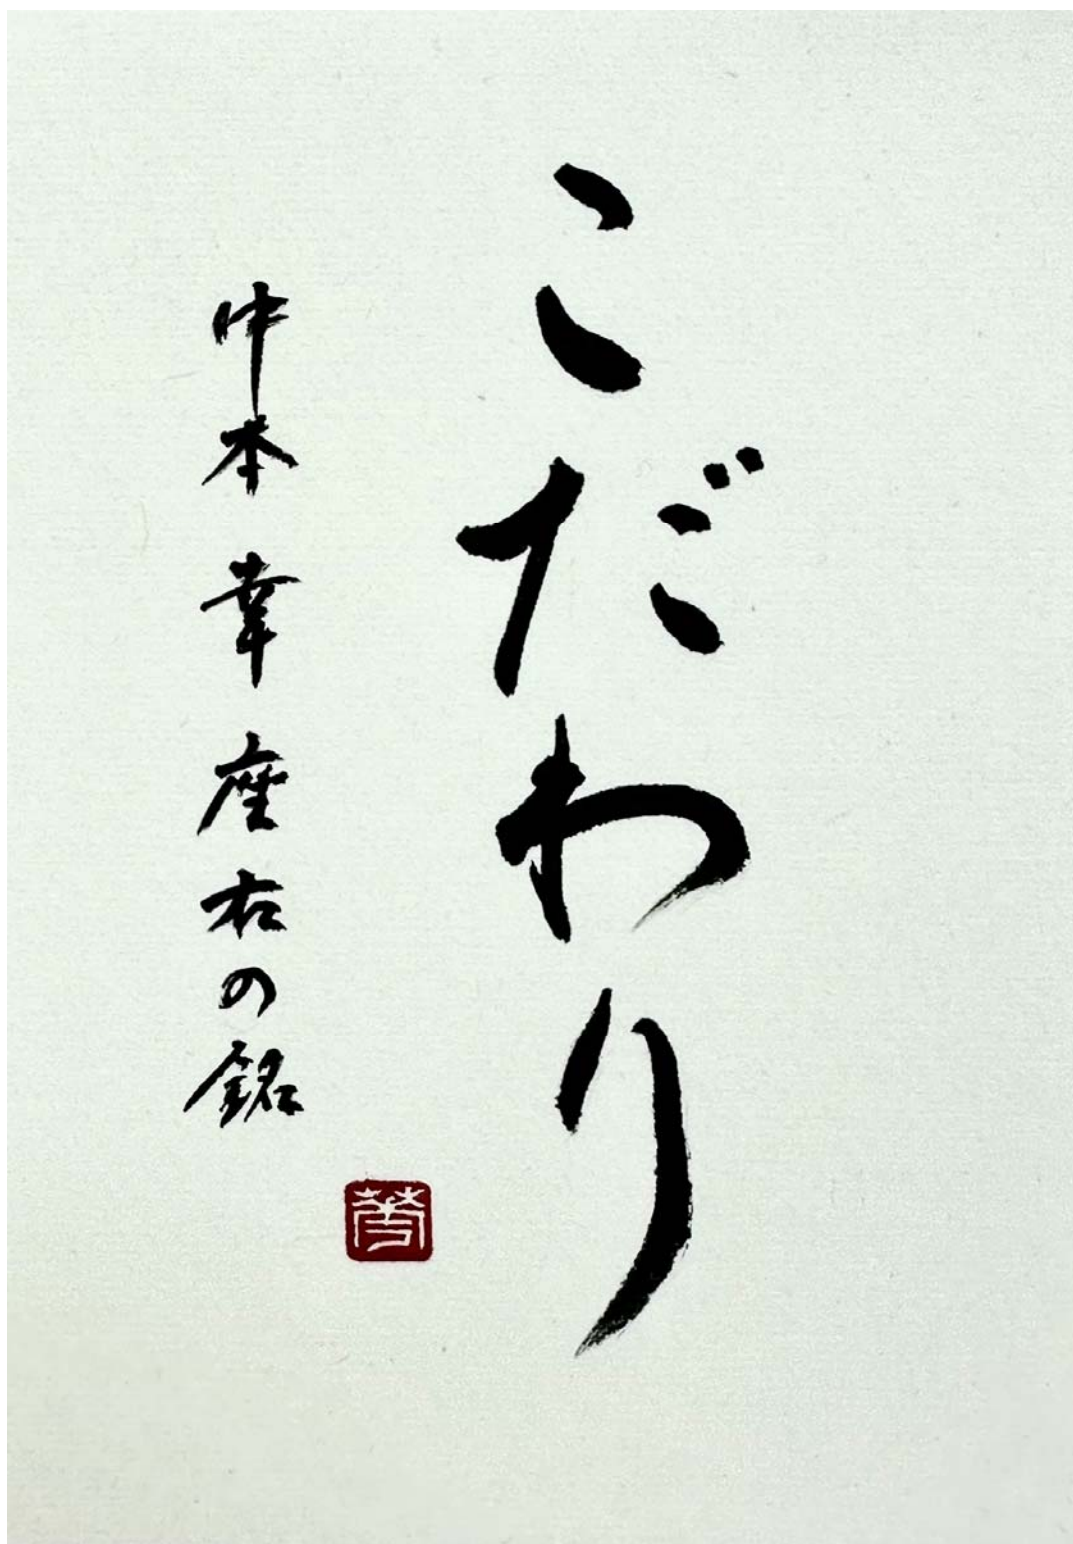 こだわり
中本 幸 座右の銘